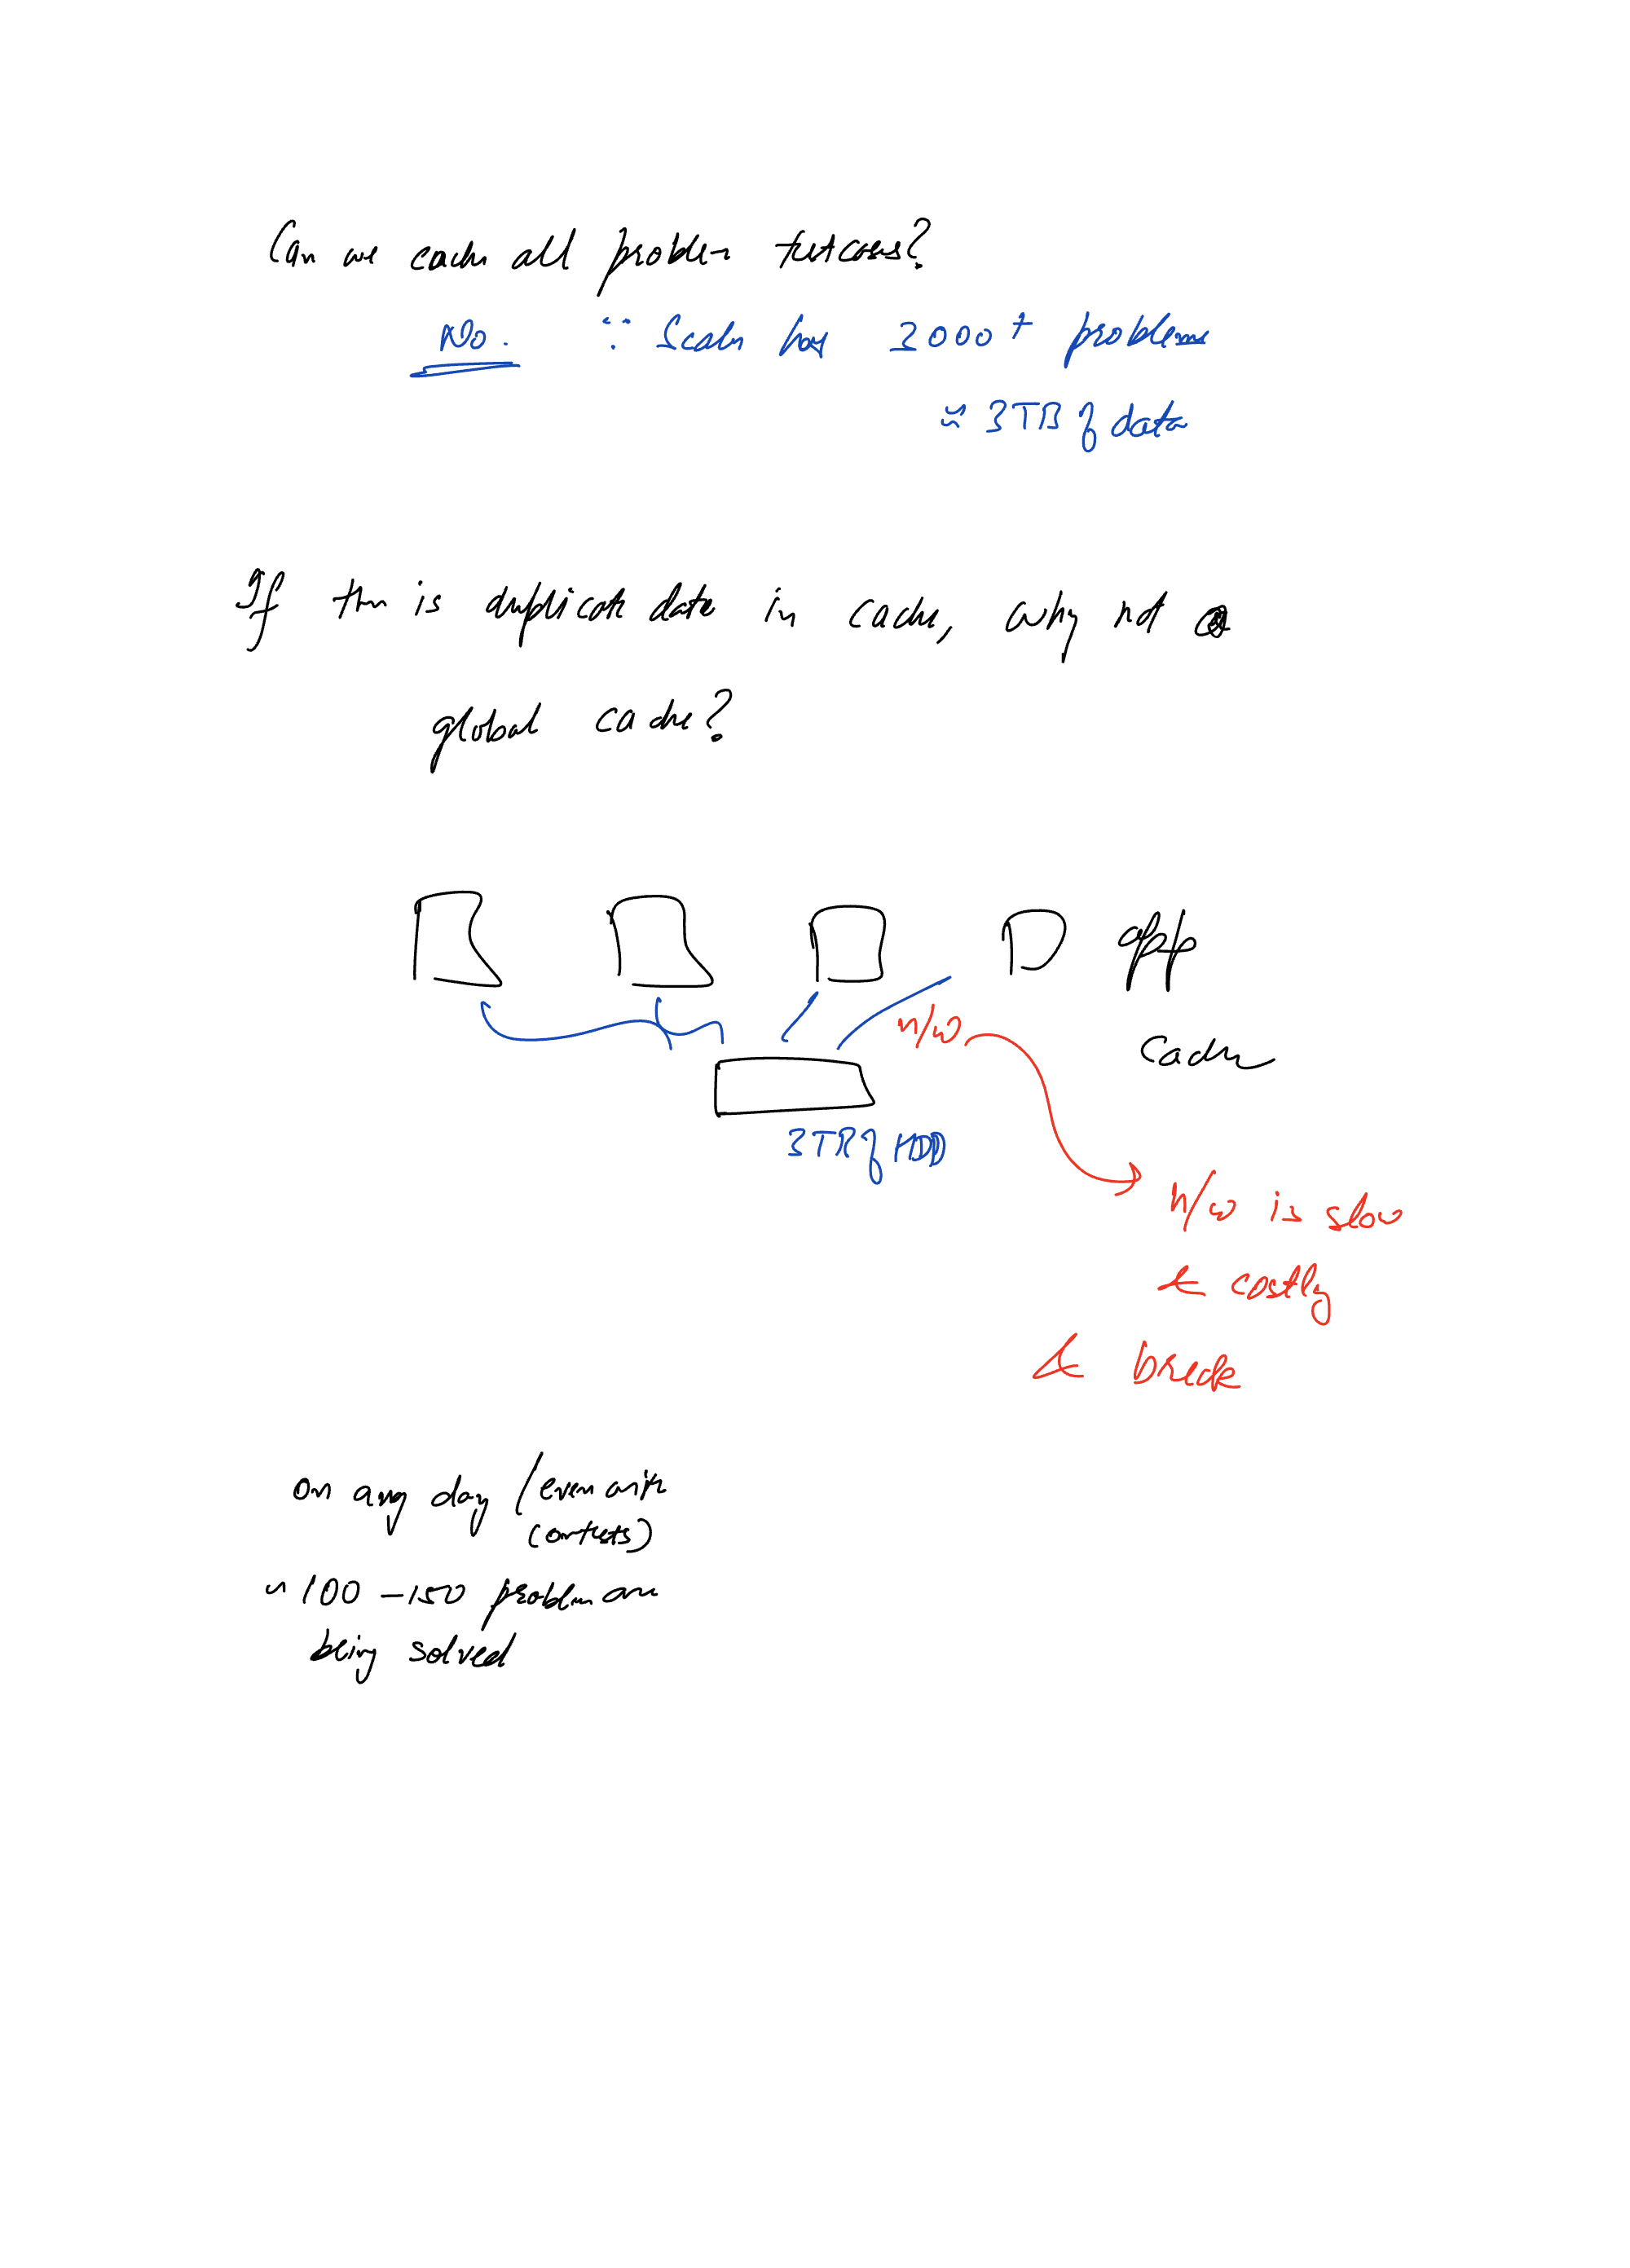 Can we cache all problem testcases?
No. ∵ Scaler has 2000+ problems
≈ 3TB of data
If there is duplicate data in cache, why not a
global cache?
app
n/w
cache
3TB of HDD
n/w is slow
& costly
& break
on any day / even with
(contests)
~ 100 - 150 problem are
being solved